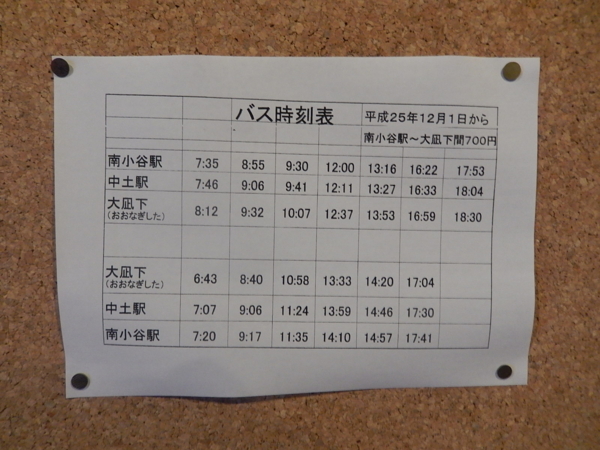 バス時刻表 平成25年12月1日から
南小谷駅～大凪下間700円
南小谷駅 7:35 8:55 9:30 12:00 13:16 16:22 17:53
中土駅 7:46 9:06 9:41 12:11 13:27 16:33 18:04
大凪下 8:12 9:32 10:07 12:37 13:53 16:59 18:30
(おおなぎした)
大凪下 6:43 8:40 10:58 13:33 14:20 17:04
(おおなぎした)
中土駅 7:07 9:06 11:24 13:59 14:46 17:30
南小谷駅 7:20 9:17 11:35 14:10 14:57 17:41